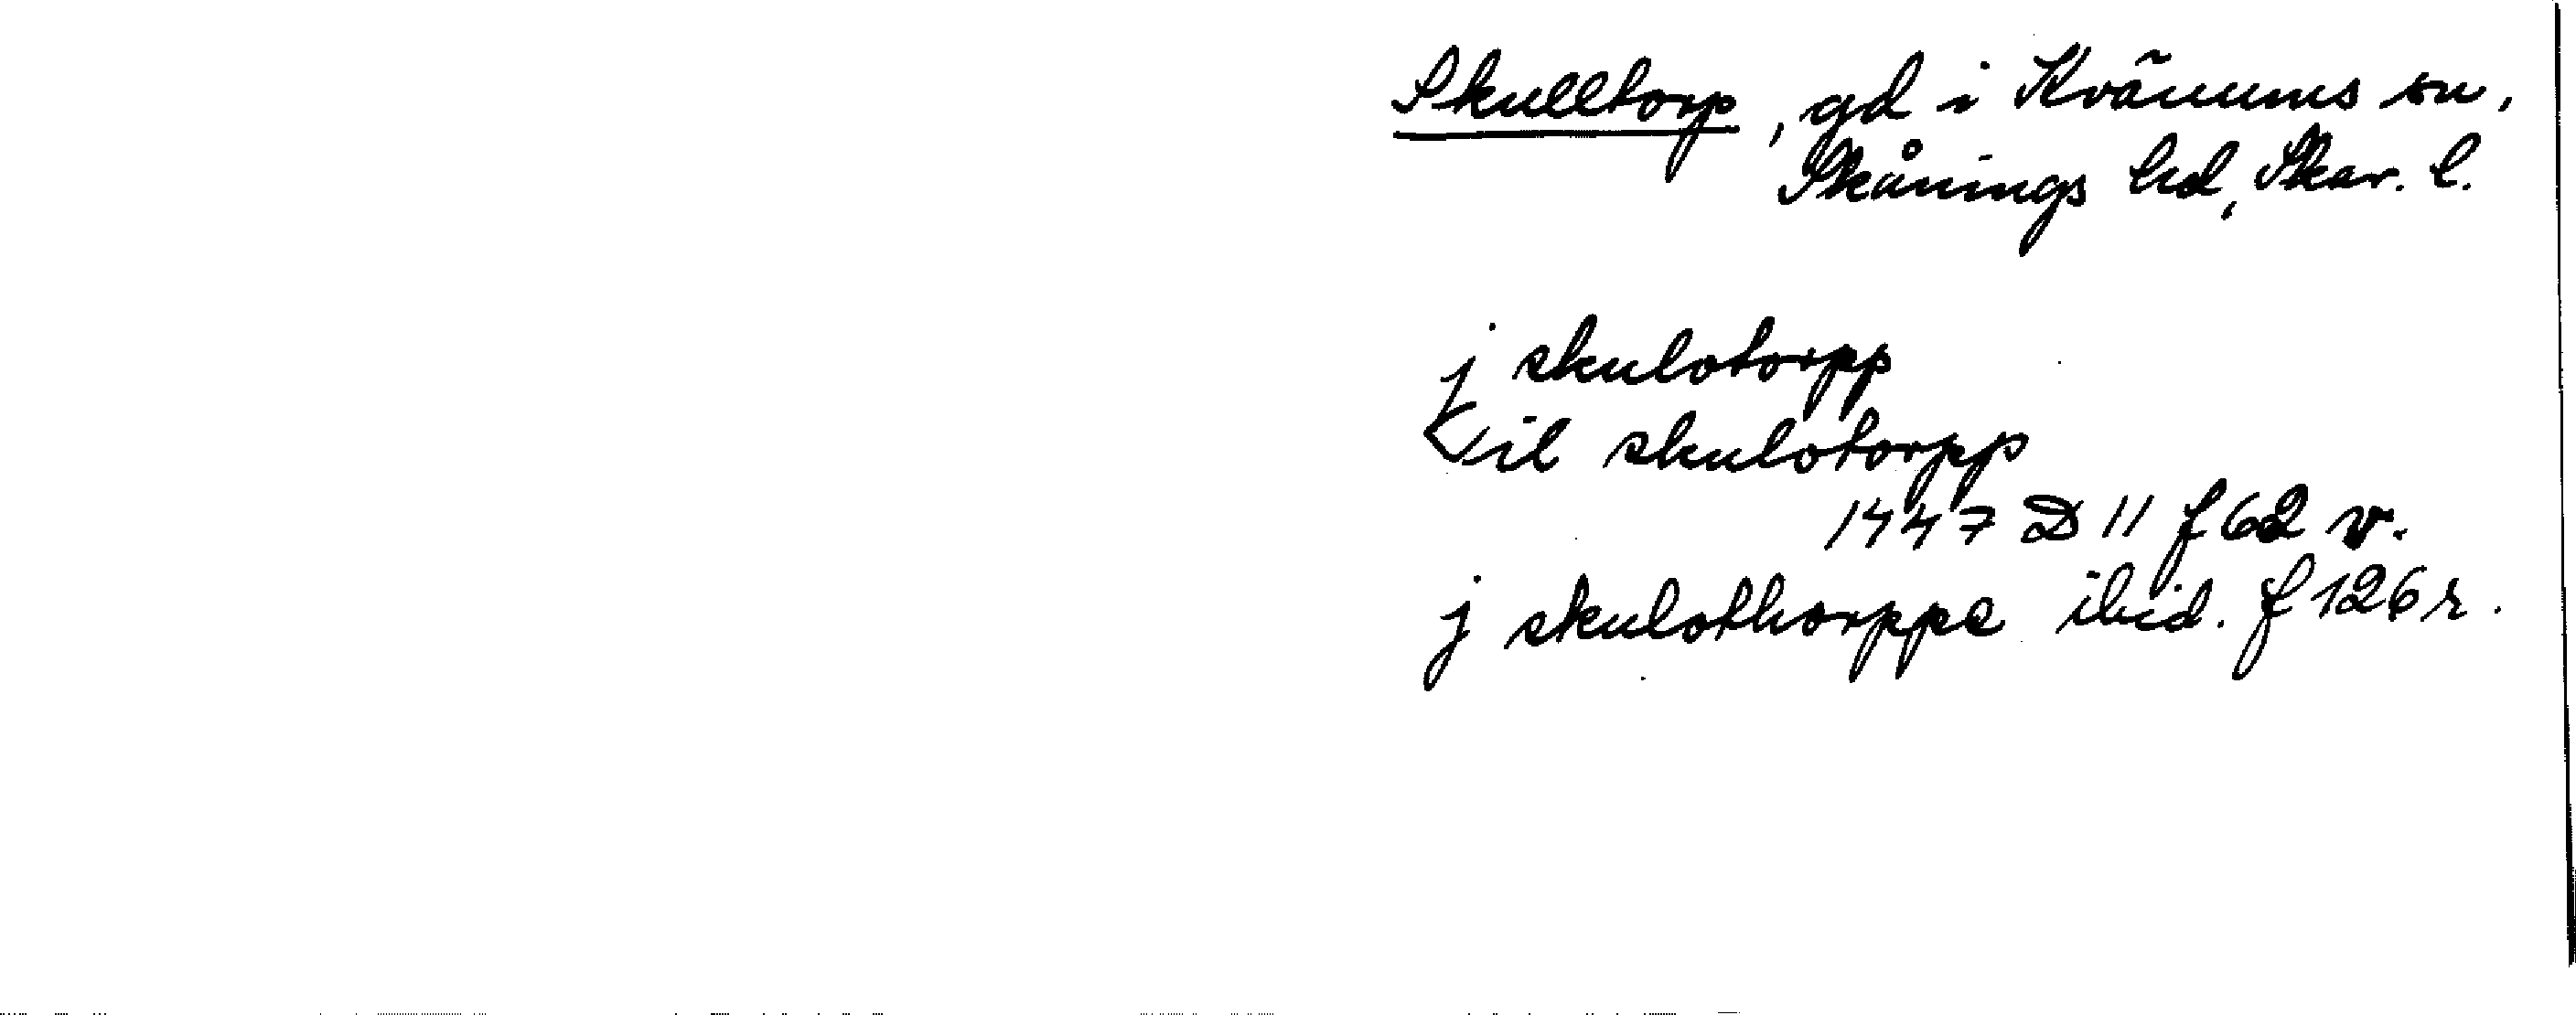 Skulltorp, gd i Kvänums sn,
Skånings hd, Skar. l.
j skulotorpp
til skulotorpp
1447 D 11 f 62 v.
j skulothorppe ibid. f 126 r.